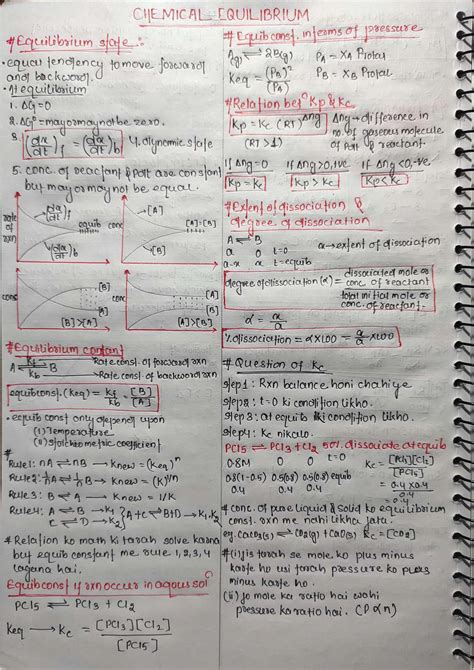 CHEMICAL EQUILIBRIUM
# Equilibrium state :-
• equal tendency to move forward
and backward.
• At equilibrium
1. ΔG=0
2. ΔG° = may or may not be zero.
3. (dx/dt)f = (dx/dt)b 4. dynamic state
5. conc of reactant & Pdt are constant
but may or may not be equal.
rate of rxn
(dx/dt)f
equib
(dx/dt)b
conc
[A]
[A]=[B]
[B]
conc
[B]
[A]
[B]>[A]
conc
[A]
[B]
[A]>[B]
# Equilibrium constant
A ⇌ B kf kb
Rate const. of forward rxn
Rate const. of backward rxn
equib const. (Keq) = kf/kb = [B]/[A]
• equib const only depend upon
(i) Temperature
(ii) Stoichtometric coefficient
#
Rule1: nA ⇌ nB → Knew = (Keq)^n
Rule2: 1/n A ⇌ 1/n B → Knew = (K)^1/n
Rule3: B ⇌ A → Knew = 1/K
Rule4: A ⇌ B → K1
C ⇌ D → K2 } A+C ⇌ B+D → K1.K2
# Relation ko math ki tarah solve karna
but equib constant me rule 1,2,3,4
lagana hai.
Equib const if rxn occur in aqous solⁿ
PCl5 ⇌ PCl3 + Cl2
Keq → Kc = [PCl3][Cl2]/[PCl5]
# Equib const. in terms of pressure
A(g) ⇌ 2B(g) PA = XA Ptotal
Keq = (PB)²/(PA) PB = XB Ptotal
# Relation betⁿ Kp & Kc
Kp = Kc (RT)^Δng Δng → difference in
(RT>1) no. of gaseous molecule
of Pdt & reactant.
if Δng=0 if Δng>0,+ve if Δng<0,-ve
Kp = Kc Kp > Kc Kp < Kc
# Extent of dissociation &
degree of dissociation
A ⇌ B
a 0 t=0 x → extent of dissociation
a-x x t=equib
degree of dissociation (α) = dissociated mole or conc of reactant / total initial mole or conc. of reactant.
α = x/a
% dissociation = α×100 = x/a ×100
# Question of Kc
Step1: Rxn balance honi chahiye
Step2: t=0 ki condition likho.
Step3: at equib ki condition likho.
Step4: Kc nikalo.
PCl5 ⇌ PCl3 + Cl2 50% dissociate at equib
0.8M 0 0 t=0 Kc = [PCl3][Cl2]/[PCl5]
0.8(1-0.5) 0.8(0.5) 0.8(0.5) equib
0.4 0.4 0.4 = 0.4×0.4/0.4
= 0.4
# conc of pure liquid & solid ko equilibrium
const. rxn me nahi likha jata.
eg. CaCO3(s) ⇌ CO2(g) + CaO(s) Kc = [CO2]
# (i) is tarah se mole ko plus minus
karte ho usi tarah pressure ko plus
minus karte ho.
(ii) Jo mole ka ratio hai wahi
pressure ka ratio hai. (P∝n)